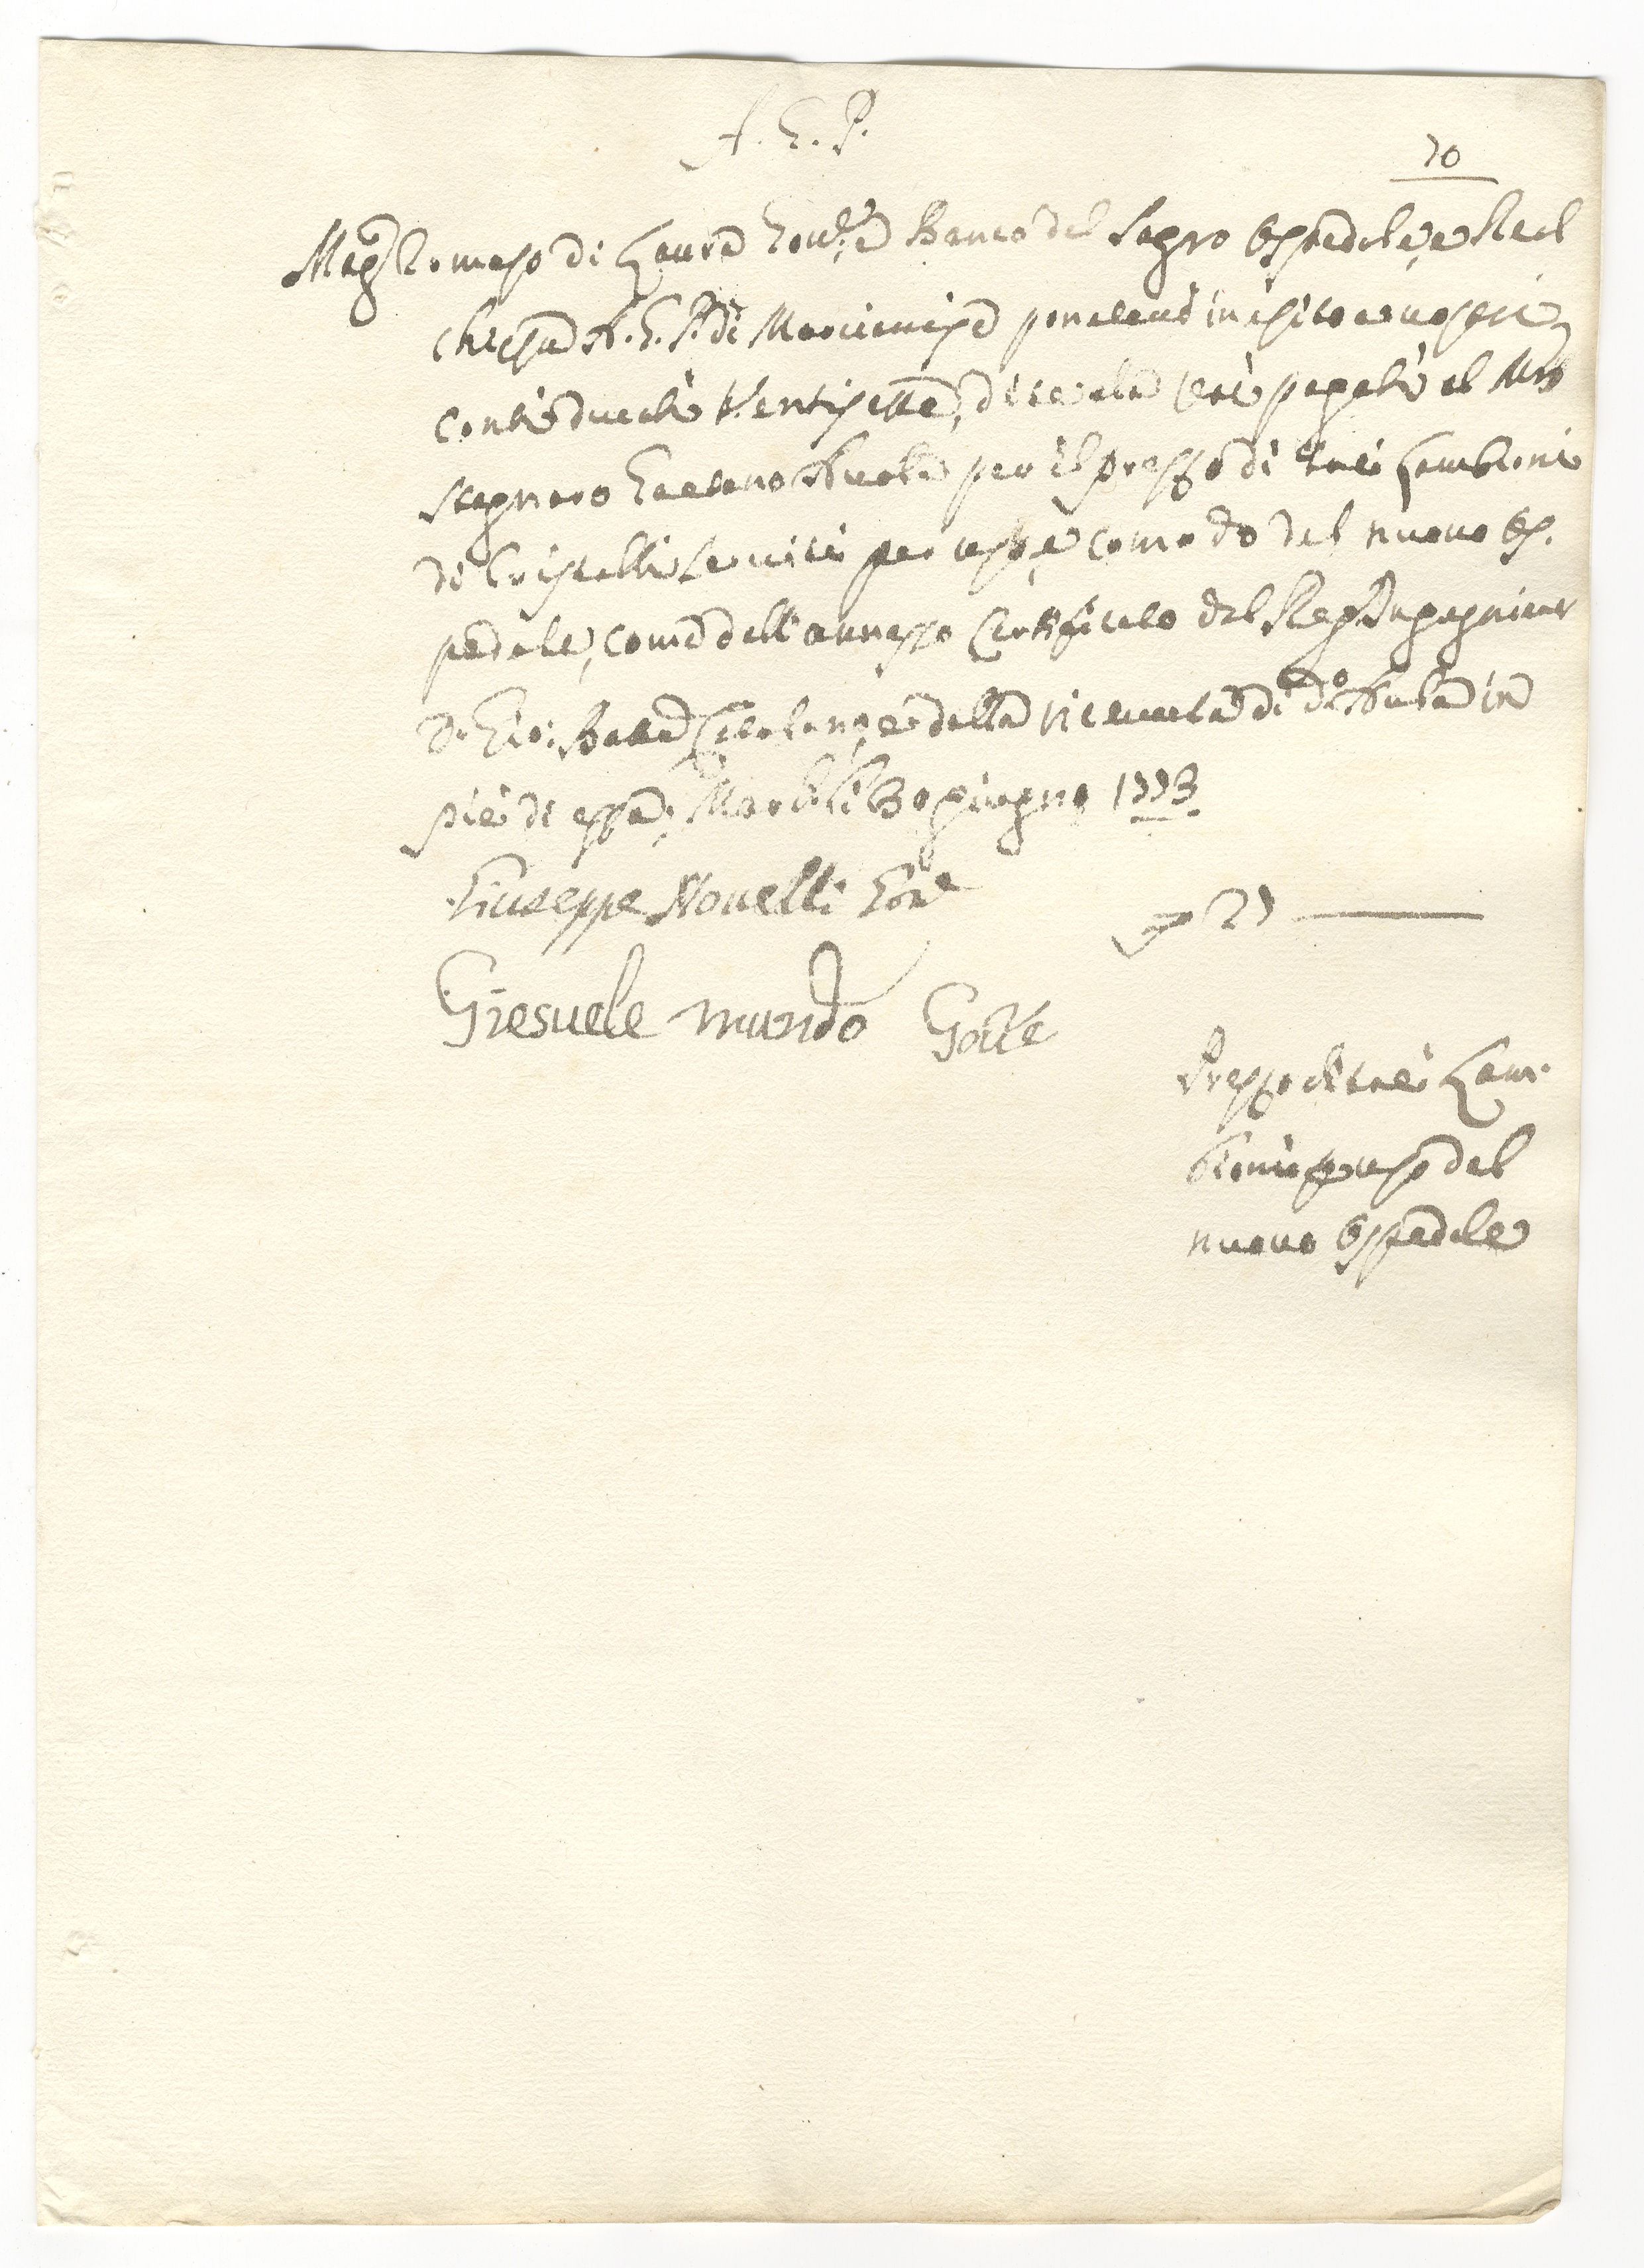 A. G. P.
70
Mag.co Tomaso di Laura Gov.re e Banco del Sagro Ospedale, e Real
Chiesa A. G. P. di Marcianise ponetene in esito a vostri
conti ducati Ventisette, di tanti pagati al Mro
stagnaro Gaetano per il prezzo di trè Lambioni
di Cristalli serviti per uso, e comodo del nuovo Os-
pedale, come dall'annesso Certificato del Reg.o Ingegniere
D. Gio: Batta, e della ricevuta di d.o in
piè di essa; Mar.e li 30 giugno 1773
Giuseppe Novelli Gov.e
Giesuele mundo Gov.re
27
Prezzo di trè Lam-
bioni per uso del
nuovo Ospedale